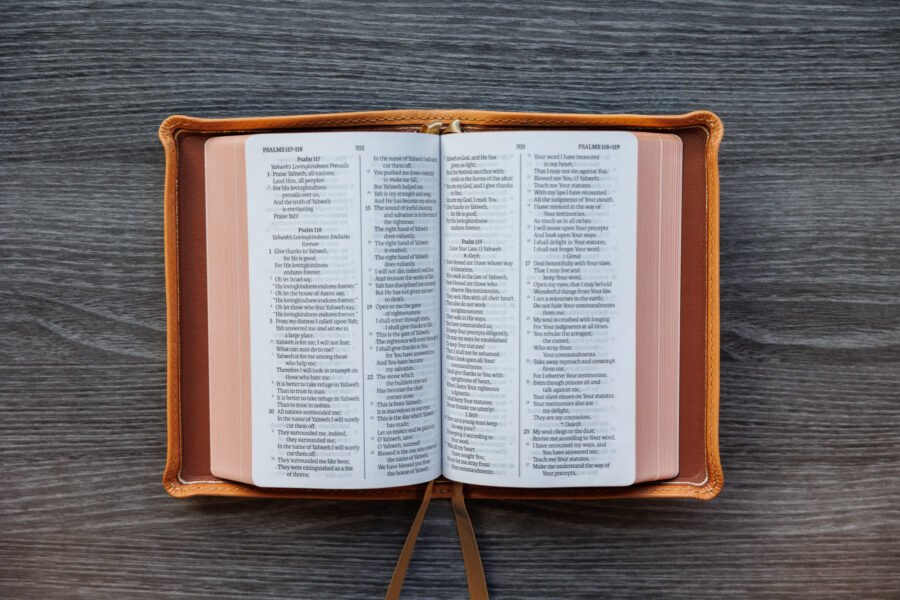 PSALMS 117–118
703
Psalm 117
Yahweh's Lovingkindness Prevails
1 Praise Yahweh, all nations;
Laud Him, all peoples!
For His lovingkindness
prevails over us,
And the truth of Yahweh
is everlasting.
Praise Yah!
Psalm 118
Yahweh's Lovingkindness Endures
Forever
1 Give thanks to Yahweh,
for He is good;
For His lovingkindness
endures forever.
Oh let Israel say,
"His lovingkindness endures forever."
Oh let the house of Aaron say,
"His lovingkindness endures forever."
Oh let those who fear Yahweh say,
"His lovingkindness endures forever."
5 From my distress I called upon Yah;
Yah answered me and set me in
a large place.
Yahweh is for me; I will not fear;
What can man do to me?
Yahweh is for me among those
who help me;
Therefore I will look in triumph on
those who hate me.
It is better to take refuge in Yahweh
Than to trust in man.
It is better to take refuge in Yahweh
Than to trust in nobles.
10 All nations surrounded me;
In the name of Yahweh I will surely
cut them off.
They surrounded me, indeed,
they surrounded me;
In the name of Yahweh I will surely
cut them off.
They surrounded me like bees;
They were extinguished as a fire
of thorns;
In the name of Yahweh I will
cut them off.
You pushed me down violently
to make me fall,
But Yahweh helped me.
Yah is my strength and song,
And He has become my
15 The sound of joyful shouting
and salvation is in the tents of
the righteous;
The right hand of Yahweh
does valiantly.
The right hand of Yahweh
is exalted;
The right hand of Yahweh
does valiantly.
I will not die; indeed I will live,
And recount the works of Yah.
Yah has disciplined me severely,
But He has not given me over
to death.
19 Open to me the gates
of righteousness;
I shall enter through them,
I shall give thanks to Yah.
This is the gate of Yahweh;
The righteous will enter through it.
I shall give thanks to You,
for You have answered me,
And You have become
my salvation.
22 The stone which
the builders rejected
Has become the chief
corner stone.
This is from Yahweh;
It is marvelous in our eyes.
This is the day which Yahweh
has made;
Let us rejoice and be glad in it.
O Yahweh, save!
O Yahweh, succeed!
Blessed is the one who comes in
the name of Yahweh;
We have blessed you from
the house of Yahweh.
703
PSALMS 118–119
Yahweh is God, and He has
given us light;
Bind the festival sacrifice with
cords to the horns of the altar.
You are my God, and I give thanks
to You;
You are my God, I exalt You.
Give thanks to Yahweh,
for He is good;
For His lovingkindness
endures forever.
Psalm 119
I Love Your Law, O Yahweh
א Aleph
How blessed are those whose way
is blameless,
Who walk in the law of Yahweh.
How blessed are those who
observe His testimonies,
They seek Him with all their heart.
They also do not work
unrighteousness;
They walk in His ways.
You have commanded us,
To keep Your precepts diligently.
Oh may my ways be established
To keep Your statutes!
Then I shall not be ashamed
When I look upon all Your
commandments.
I shall give thanks to You with
uprightness of heart,
When I learn Your righteous
judgments.
I shall keep Your statutes;
Do not forsake me utterly!
ב Beth
How can a young man keep
his way pure?
By keeping it according to
Your word.
With all my heart
I have sought You;
Do not let me stray from
Your commandments.
Your word I have treasured
in my heart,
That I may not sin against You.
Blessed are You, O Yahweh;
Teach me Your statutes.
With my lips I have recounted
All the judgments of Your mouth.
I have rejoiced in the way of
Your testimonies,
As much as in all riches.
I will muse upon Your precepts
And look upon Your ways.
I shall delight in Your statutes;
I shall not forget Your word.
ג Gimel
17 Deal bountifully with Your slave,
That I may live and
keep Your word.
Open my eyes, that I may behold
Wonderful things from Your law.
I am a sojourner in the earth;
Do not hide Your commandments
from me.
My soul is crushed with longing
For Your judgments at all times.
You rebuke the arrogant,
the cursed,
Who stray from
Your commandments.
Take away reproach and contempt
from me,
For I observe Your testimonies.
Even though princes sit and
talk against me,
Your slave muses on Your statutes.
Your testimonies also are
my delight;
They are my counselors.
ד Daleth
25 My soul clings to the dust;
Revive me according to Your word.
I have recounted my ways, and
You have answered me;
Teach me Your statutes.
Make me understand the way of
Your precepts,